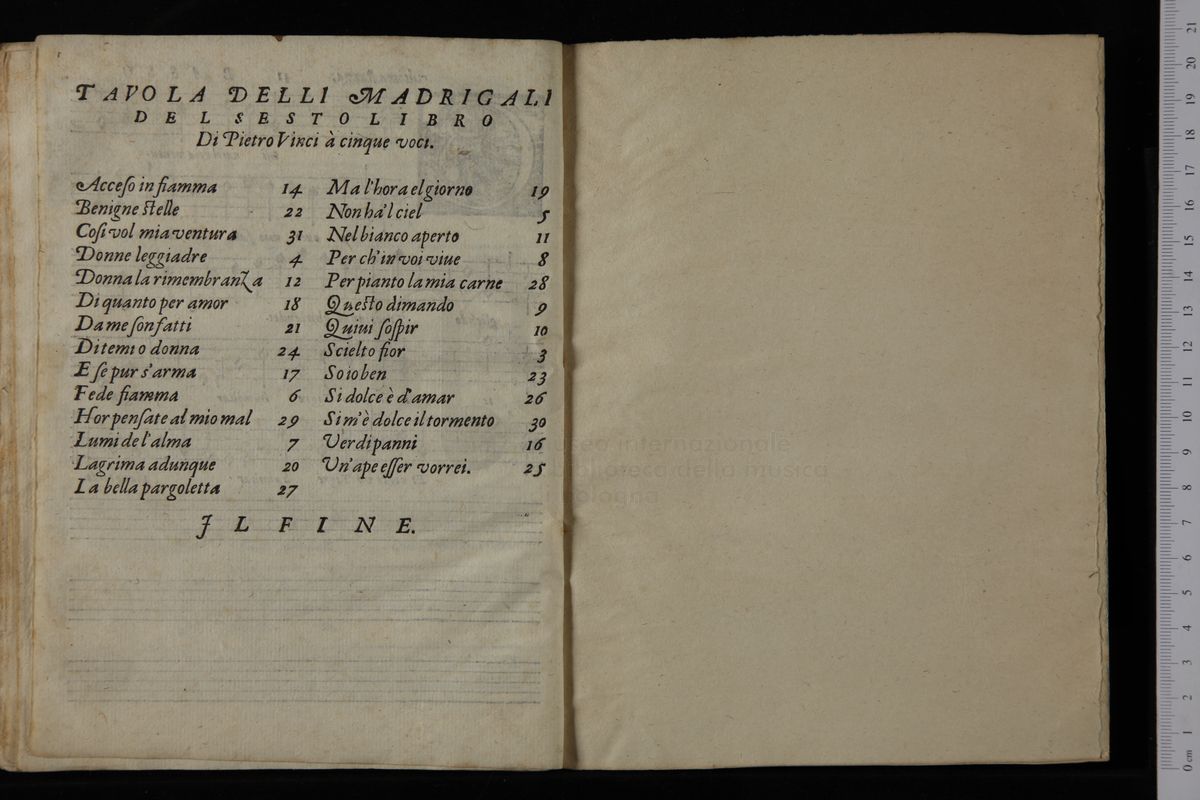 TAVOLA DELLI MADRIGALI
DEL SESTO LIBRO
Di Pietro Vinci à cinque voci.
Acceſo in fiamma 14
Benigne ſtelle 22
Coſi vol mia ventura 31
Donne leggiadre 4
Donna la rimembranza 12
Di quanto per amor 18
Da me ſon fatti 21
Di temi o donna 24
E ſe pur s'arma 17
Fede fiamma 6
Hor penſate al mio mal 29
Lumi de l'alma 7
Lagrima adunque 20
La bella pargoletta 27
Ma l'hora el giorno 19
Non ha'l ciel 5
Nel bianco aperto 11
Per ch'in voi viue 8
Per pianto la mia carne 28
Queſto dimando 9
Quiui ſoſpir 10
Scielto fior 3
So io ben 23
Si dolce è d'amar 26
Si m'è dolce il tormento 30
Verdi panni 16
Vn'ape eſſer vorrei. 25
IL FINE.
museo internazionale
biblioteca della musica
bologna
0 cm 1 2 3 4 5 6 7 8 9 10 11 12 13 14 15 16 17 18 19 20 21